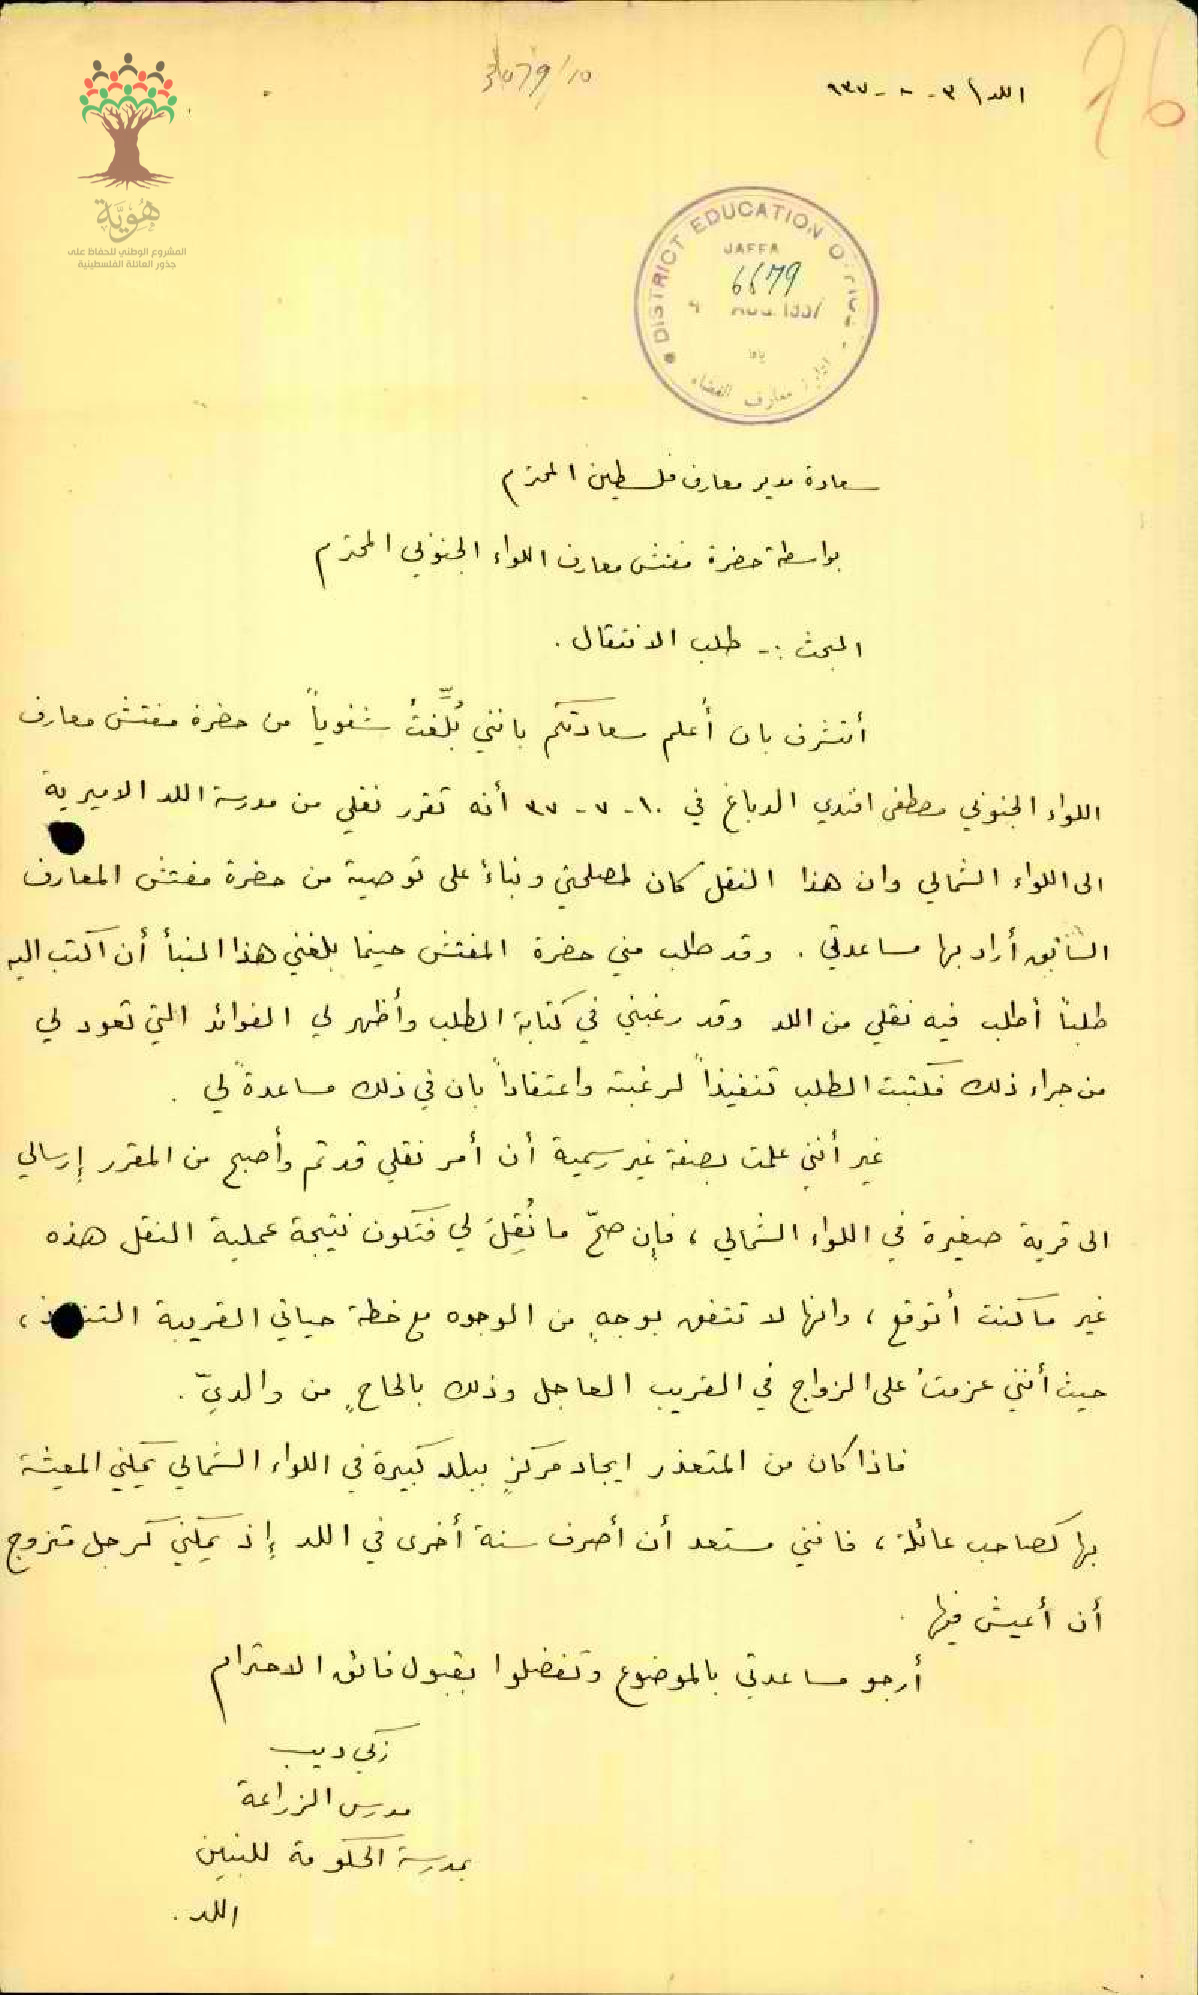 96
3079/10
اللد ٣ - ٨ - ٩٣٧
هُوِيَّة
المشروع الوطني للحفاظ على
جذور العائلة الفلسطينية
DISTRICT EDUCATION OFFICE
JAFFA
6679
4 AUG 1937
يافا
ادارة معارف القضاء
سعادة مدير معارف فلسطين المحترم
بواسطة حضرة مفتش معارف اللواء الجنوبي المحترم
البحث :- طلب الانتقال .
أتشرف بان أُعلم سعادتكم بانني بُلِّغتُ شفوياً من حضرة مفتش معارف
اللواء الجنوبي مصطفى افندي الدباغ في ١٠ - ٧ - ٣٧ أنه تقرر نقلي من مدرسة اللد الاميرية
الى اللواء الشمالي وان هذا النقل كان لمصلحتي وبناءً على توصية من حضرة مفتش المعارف
السابق أراد بها مساعدتي . وقد طلب مني حضرة المفتش حينما بلغني هذا النبأ أن اكتب اليه
طلباً أطلب فيه نقلي من اللد وقد رغبني في كتابة الطلب وأظهر لي الفوائد التي تعود لي
من جراء ذلك فكتبت الطلب تنفيذاً لرغبته واعتقاداً بان في ذلك مساعدةً لي .
غير أنني علمت بصفة غير رسمية أن أمر نقلي قد تم وأصبح من المقرر إرسالي
الى قرية صغيرة في اللواء الشمالي ، فإن صحّ ما نُقِلَ لي فتكون نتيجة عملية النقل هذه
غير ما كنت أتوقع ، وانها لا تتفق بوجهٍ من الوجوه مع خطة حياتي القريبة التنفيذ ،
حيث أنني عزمتُ على الزواج في القريب العاجل وذلك بالحاحٍ من والديّ .
فاذا كان من المتعذر ايجاد مركزٍ ببلد كبيرة في اللواء الشمالي يمكنني المعيشة
بها كصاحب عائلة ، فانني مستعد أن أصرف سنة أخرى في اللد إذ يمكنني كرجل متزوج
أن أعيش فيها .
أرجو مساعدتي بالموضوع وتفضلوا بقبول فائق الاحترام
زكي ديب
مدرس الزراعة
بمدرسة الحكومة للبنين
اللد .